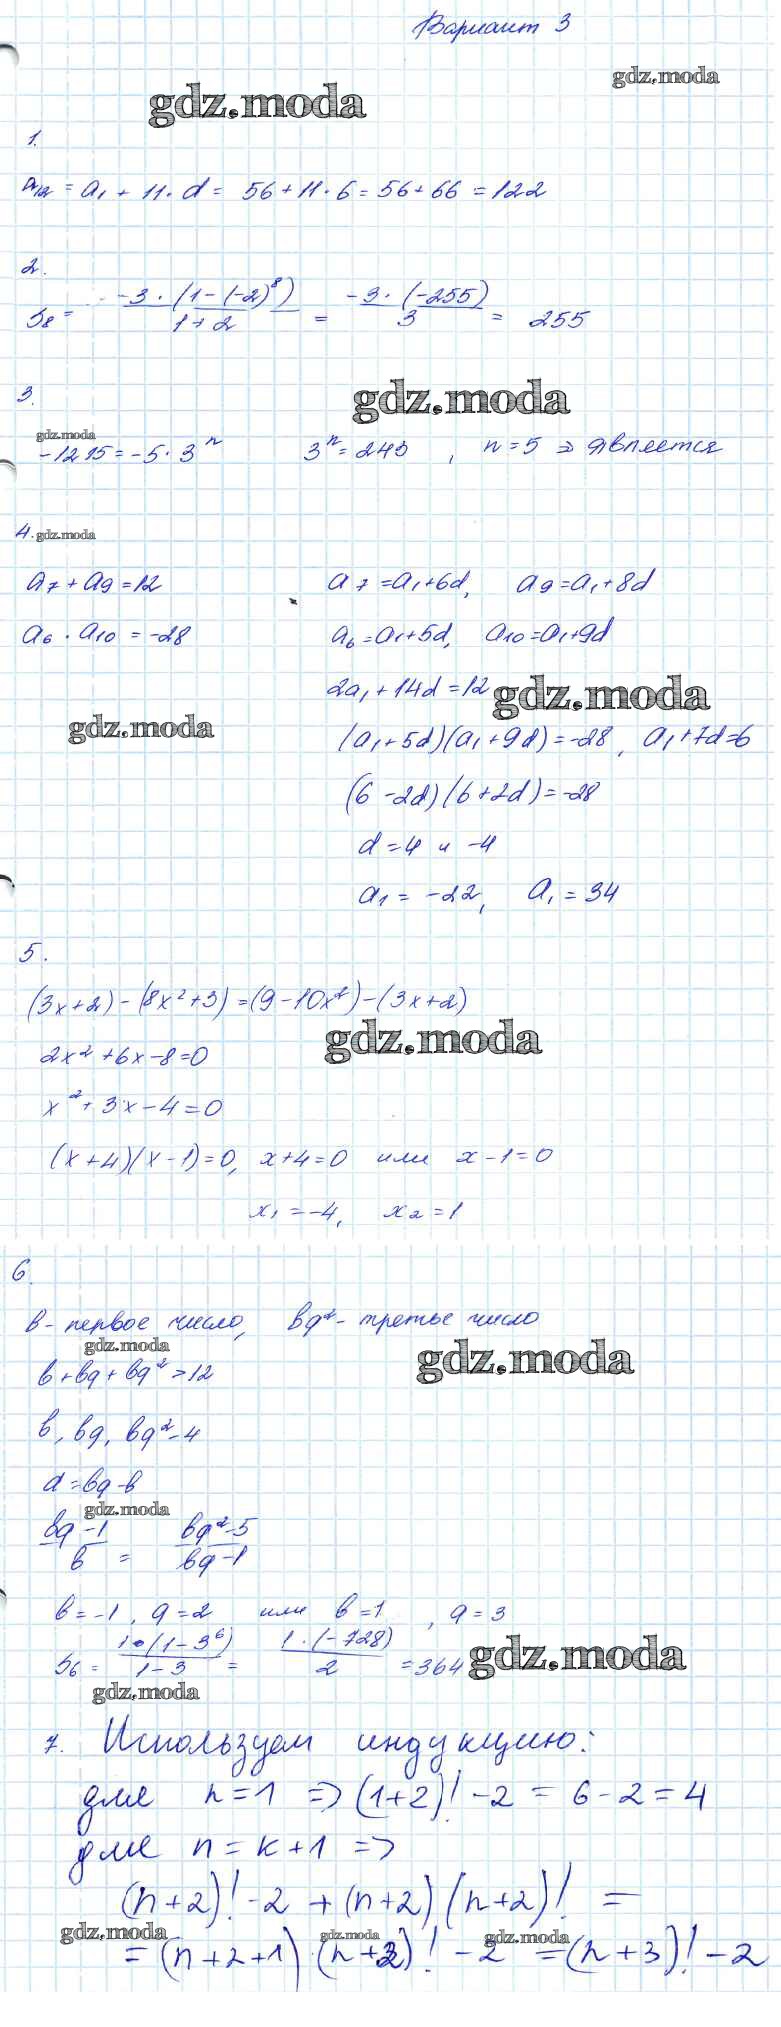 Вариант 3
gdz.moda
gdz.moda
1.
a₁₂ = a₁ + 11·d = 56+11·6 = 56+66 = 122
2.
S₈ = -3·(1-(-2)⁸) / 1+2 = -3·(-255) / 3 = 255
3.
gdz.moda
gdz.moda
-1215 = -5·3ⁿ 3ⁿ = 243, n=5 ⇒ является
4.
gdz.moda
a₇ + a₉ = 12 a₇ = a₁+6d, a₉ = a₁+8d
a₆ · a₁₀ = -28 a₆ = a₁+5d, a₁₀ = a₁+9d
2a₁ + 14d = 12
gdz.moda
gdz.moda
(a₁+5d)(a₁+9d) = -28, a₁+7d=6
(6-2d)(6+2d) = -28
d = 4 и -4
a₁ = -22, a₁ = 34
5.
(3x+2)-(8x²+3)=(9-10x²)-(3x+2)
gdz.moda
2x²+6x-8=0
x²+3x-4=0
(x+4)(x-1)=0, x+4=0 или x-1=0
x₁=-4, x₂=1
6.
b - первое число, bq² - третье число
gdz.moda
gdz.moda
b+bq+bq²=12
b, bq, bq²-4
d=bq-b
gdz.moda
bq-1 / b = bq²-5 / bq-1
b=-1, q=2 или b=1, q=3
S₆ = 1·(1-3⁶) / 1-3 = 1·(-728) / 2 = 364
gdz.moda
gdz.moda
7. Используем индукцию:
для n=1 => (1+2)!-2 = 6-2=4
для n=k+1 =>
(n+2)!-2+(n+2)(n+2)! =
gdz.moda
gdz.moda
gdz.moda
=(n+2+1)(n+2)!-2=(n+3)!-2